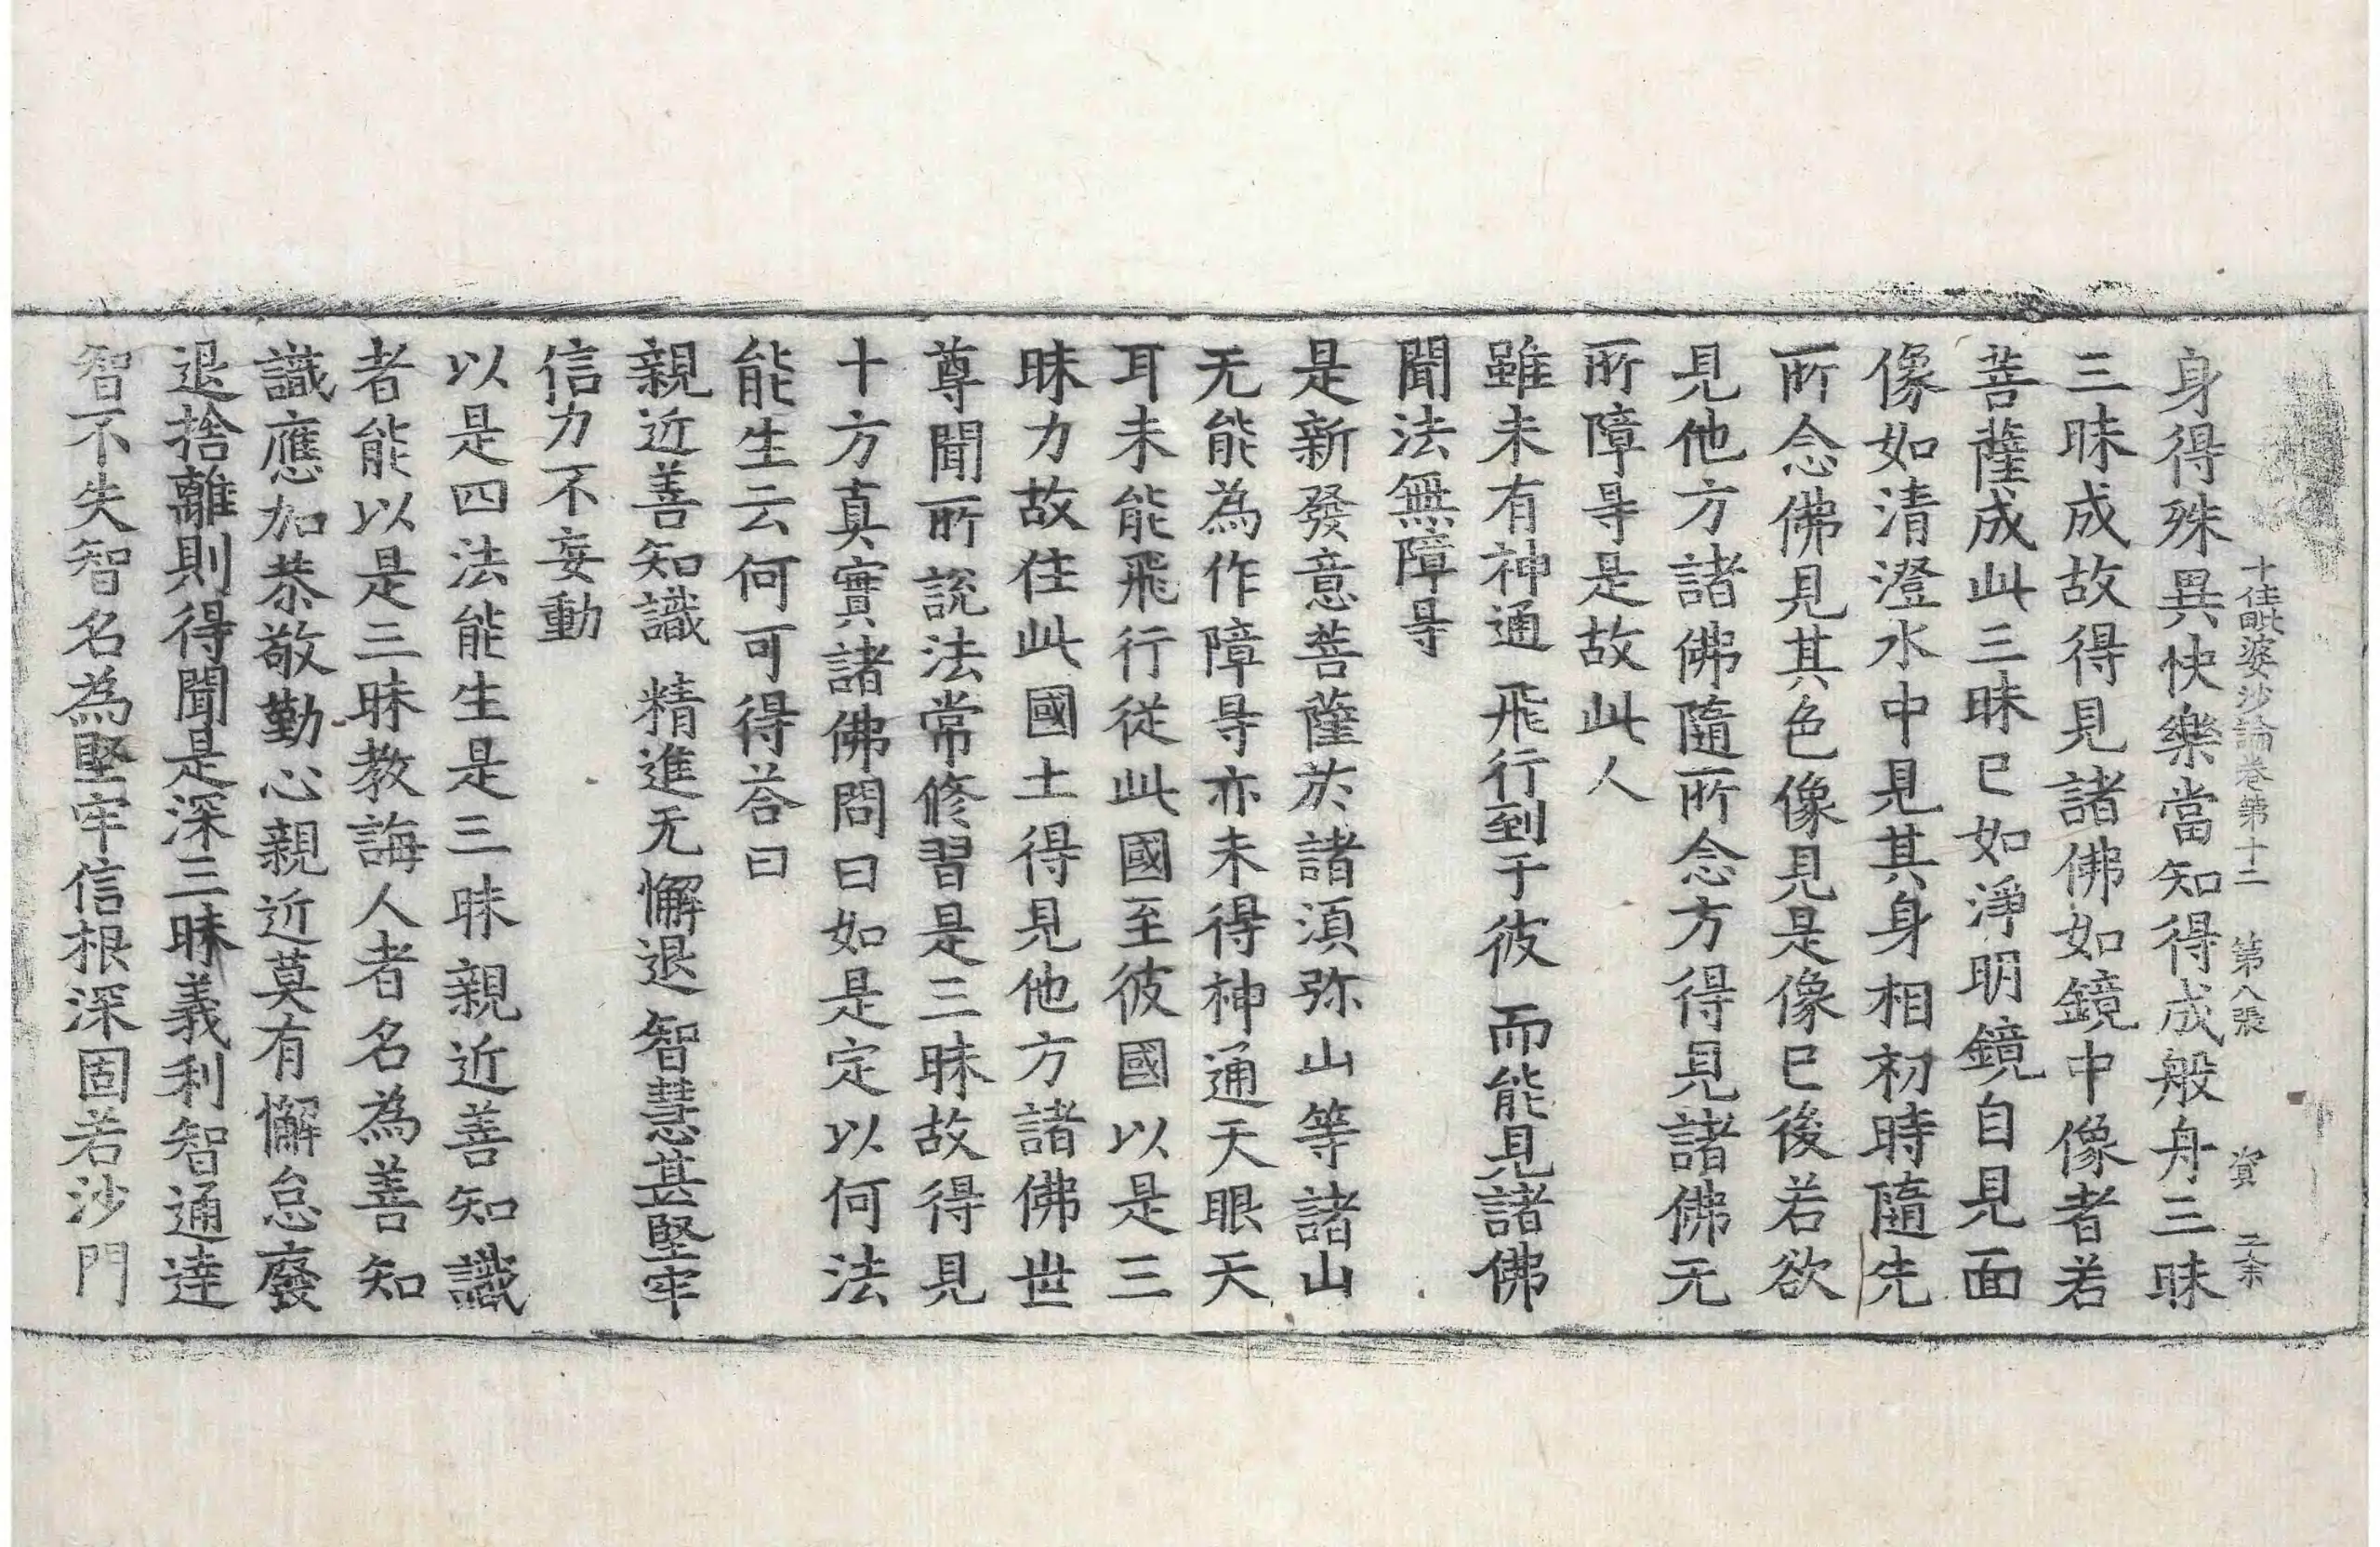 十住毗婆沙論卷第十二 第八張 資
身得殊異快樂當知得成般舟三昧
三昧成故得見諸佛如鏡中像者若
菩薩成此三昧已如淨明鏡自見面
像如清澄水中見其身相初時隨先
所念佛見其色像見是像已後若欲
見他方諸佛隨所念方得見諸佛无
所障㝵是故此人
雖未有神通 飛行到于彼 而能見諸佛
聞法無障㝵
是新發意菩薩於諸湏弥山等諸山
无能為作障㝵亦未得神通天眼天
耳未能飛行從此國至彼國以是三
昧力故住此國土得見他方諸佛世
尊聞所說法常修習是三昧故得見
十方真實諸佛問曰如是定以何法
能生云何可得荅曰
親近善知識 精進无懈退 智慧甚堅牢
信力不妄動
以是四法能生是三昧親近善知識
者能以是三昧教誨人者名為善知
識應加恭敬勤心親近莫有懈怠廢
退捨離則得聞是深三昧義利智通達
智不失智名為堅牢信根深固若沙門